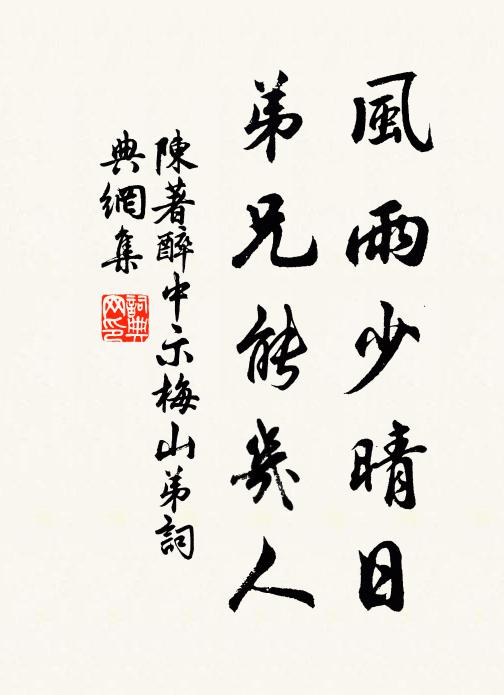 風雨少晴日
弟兄能幾人
陳著醉中示梅山弟詞
典網集
詞典网印